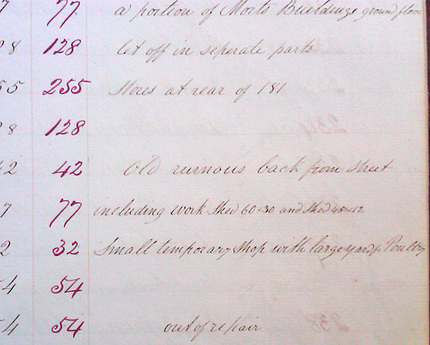 7 77 a portion of ground floor
28 128 let off in seperate parts
55 255 Stores at rear of 181
28 128
42 42 Old ruinous back from street
7 77 including work Shed 60-30 and Shed
2 32 Small temporary Shop with large yard Poultry
54 54
54 54 out of repair